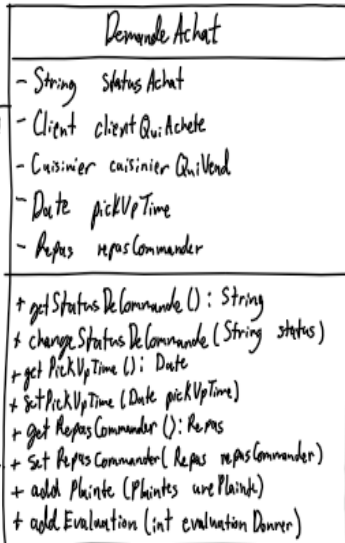 Demande Achat
- String statusAchat
- Client clientQuiAchete
- Cuisinier cuisinierQuiVend
- Date pickUpTime
- Repas repasCommander
+ getStatusDeCommande () : String
+ changeStatusDeCommande (String status)
+ get PickUpTime () : Date
+ setPickUpTime (Date pickUpTime)
+ get RepasCommander () : Repas
+ set RepasCommander ( Repas repasCommander)
+ add Plainte (Plaintes unePlainte)
+ add Evaluation (int evaluationDonner)